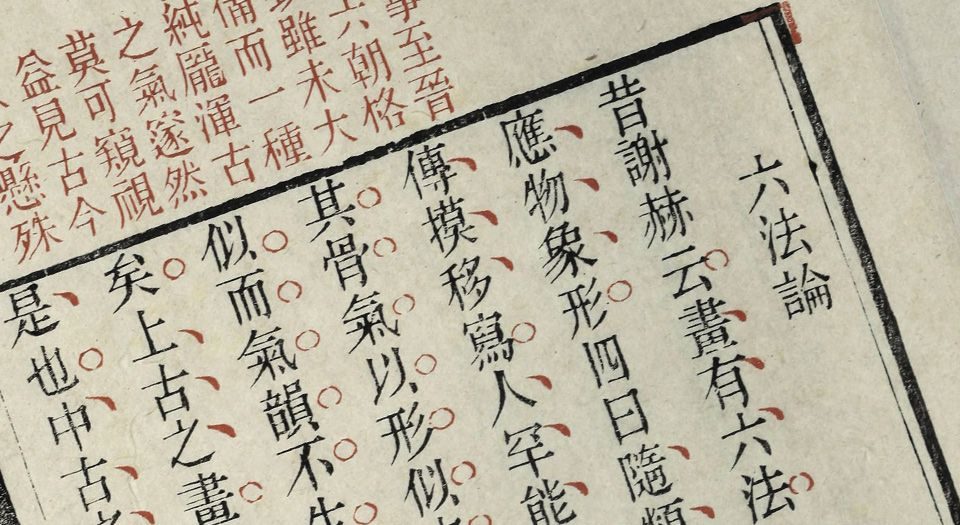 至晉
六朝格
雖未大
備而一種
純龎渾古
之氣邃然
莫可窺視
益見古今
之懸殊
六法論
昔謝赫云畫有六法
應物象形四曰隨類
傳摸移寫人罕能
其骨氣以形似
似而氣韻不
矣上古之畫
是也中古